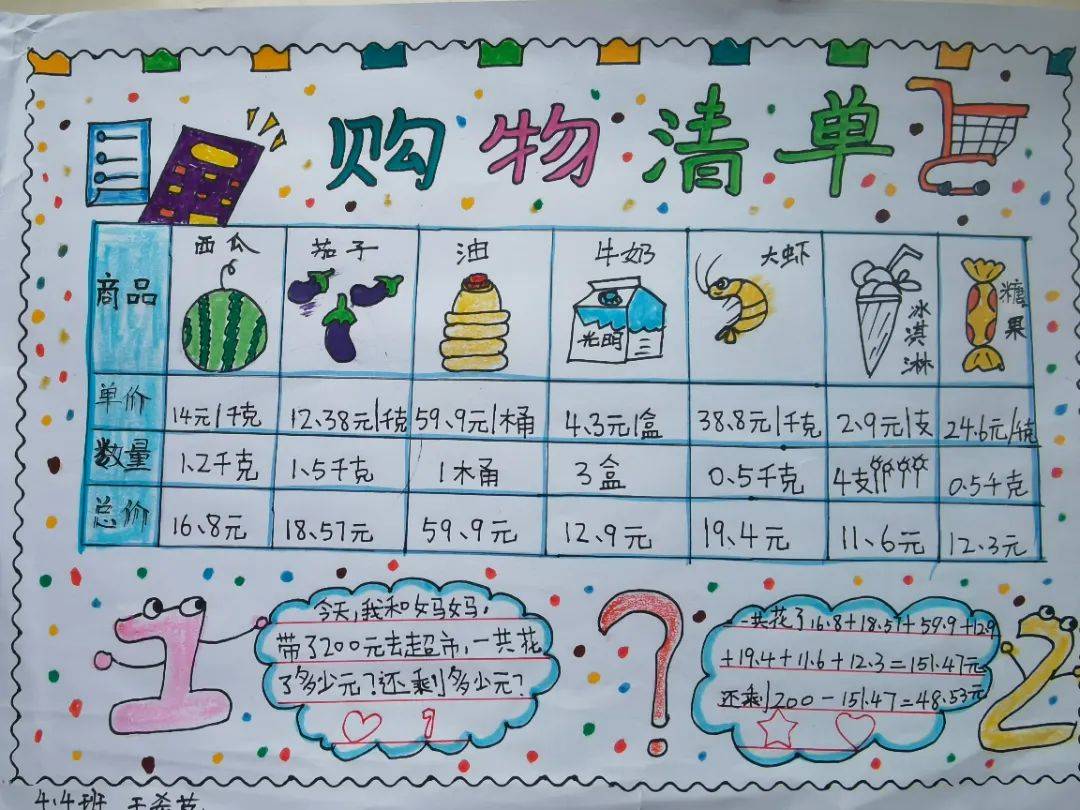 购物清单
商品 西瓜 茄子 油 牛奶 大虾 冰淇淋 糖果
光明
单价 14元/千克 12.38元/千克 59.9元/桶 4.3元/盒 38.8元/千克 2.9元/支 24.6元/千克
数量 1.2千克 1.5千克 1桶 3盒 0.5千克 4支 0.5千克
总价 16.8元 18.57元 59.9元 12.9元 19.4元 11.6元 12.3元
今天,我和妈妈,
带了200元去超市,一共花
了多少元?还剩多少元?
一共花了16.8+18.57+59.9+12.9
+19.4+11.6+12.3=151.47元
还剩200-151.47=48.53元
4.4班